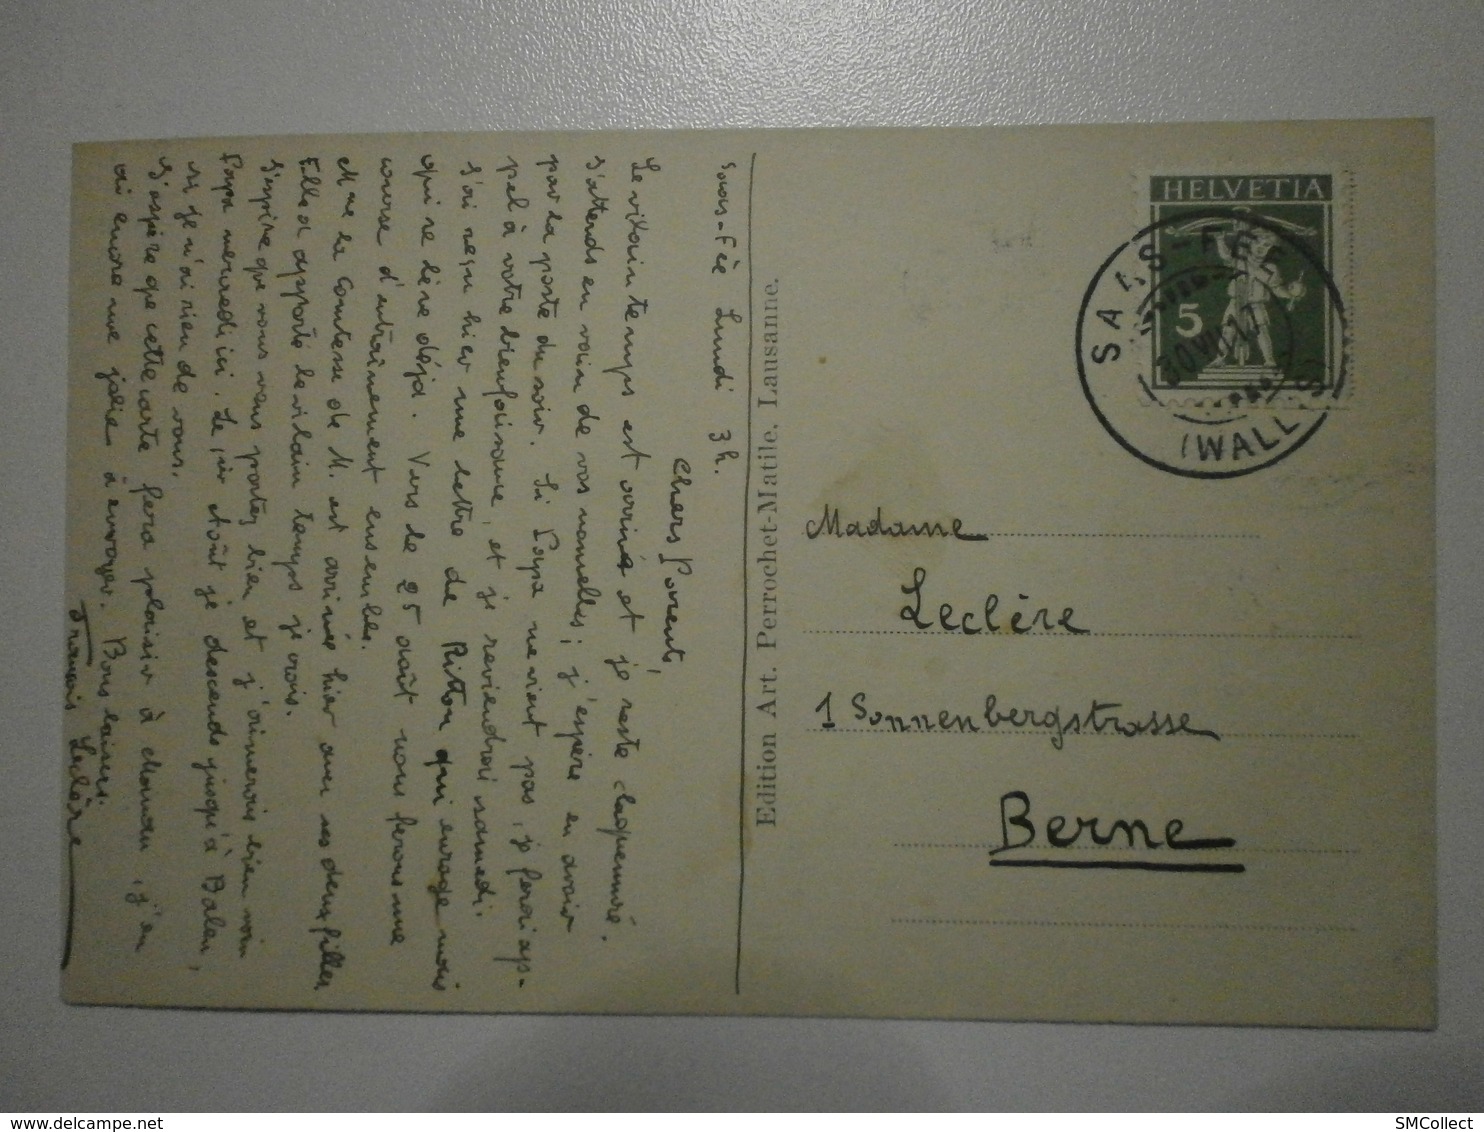 Saas-Fée Lundi 3h.
Chers Parents,
Le vilain temps est arrivé et je reste claquemuré.
J'attends en vain de vos nouvelles; j'espère en avoir
par la poste du soir. Si Papa ne vient pas, je ferai ap-
pel à votre bienfaisance, et je reviendrai samedi.
J'ai reçu hier une lettre de Ritton qui enrage mais
qui se lève déjà. Vers le 25 août nous ferons une
course d'entraînement ensembles.
Mme la Comtesse de M. est arrivée hier avec ses deux filles
Elle a apporté le vilain temps je crois.
J'espère que vous vous portez bien et j'aimerais bien voir
Papa mercredi ici. Le 1er Août je descends jusqu'à Balen,
si je n'ai rien de vous.
J'espère que cette carte fera plaisir à , j'en
ai encore une jolie à envoyer. Bons baisers.
François Leclère
Edition Art. Perrochet-Matile, Lausanne.
HELVETIA
5
SAAS-FEE
30.VII.
(WALLIS)
Madame
Leclère
1 Sonnenbergstrasse
Berne
www.delcampe.net
SMCollect